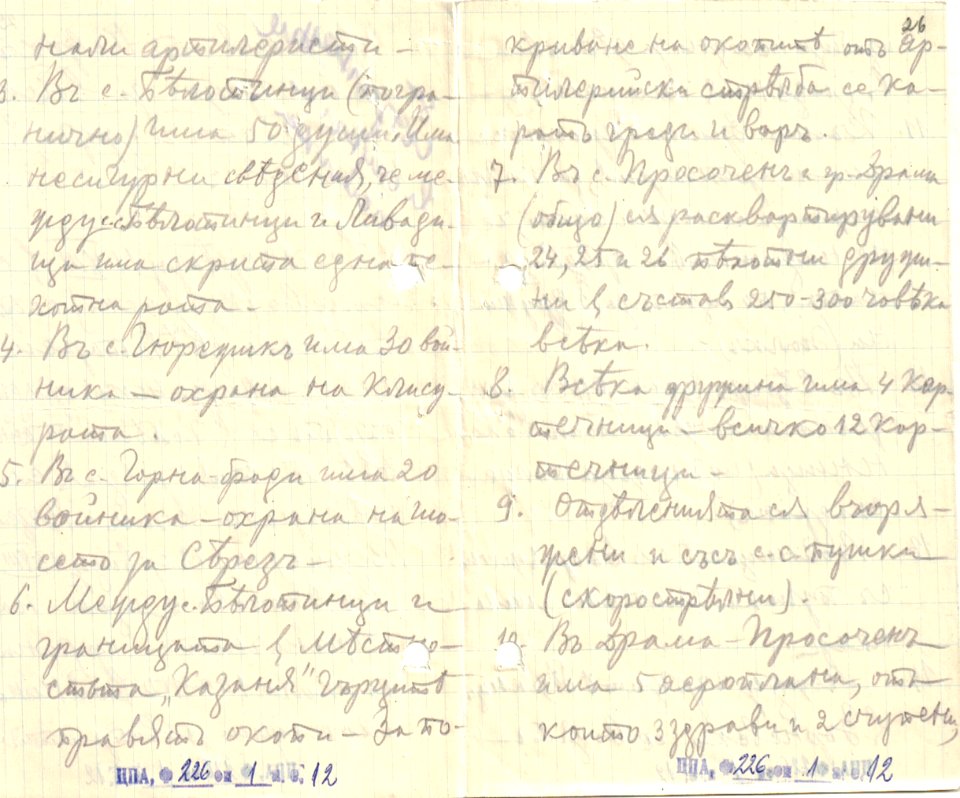 нали артилеристи –
3. Въ с. Бѣлотинци (погра-
нично) има 50 души. Има
несигурни свѣдения, че ме-
жду с. Бѣлотинци и Ливади-
ща има скрита една пе-
хотна рота –
4. Въ с. Гюреджикъ има 30 вой-
ника – охрана на клису-
рата.
5. Въ с. Горна-Броди има 20
войника – охрана на шо-
сето за Сѣрезъ –
6. Между с. Бѣлотинци и
границата в мѣстно-
стьта „Казаня" Гърцитѣ
правятъ окопи – За по-
ЦПА, Ф 226 оп 1 а. е. 12
26
криване на окопитѣ отъ ар-
тилерийски стрѣлба се ка-
ратъ греди и варъ.
7. Въ с. Просоченъ и гр. Драма
(общо) ся расквартирувани
24, 25 и 26 пѣхотни дружи-
ни в състав 250-300 човѣка
всѣка.
8. Всѣка дружина има 4 кар-
течници – всичко 12 кар-
течници –
9. Отдѣленията ся въоря-
жени и съсъ с.с. пушки
(скорострѣлни).
10. Въ Драма – Просоченъ
има 5 аероплана, отъ
които 3 здрави и 2 счупени,
ЦПА, Ф 226 оп 1 а. е. 12